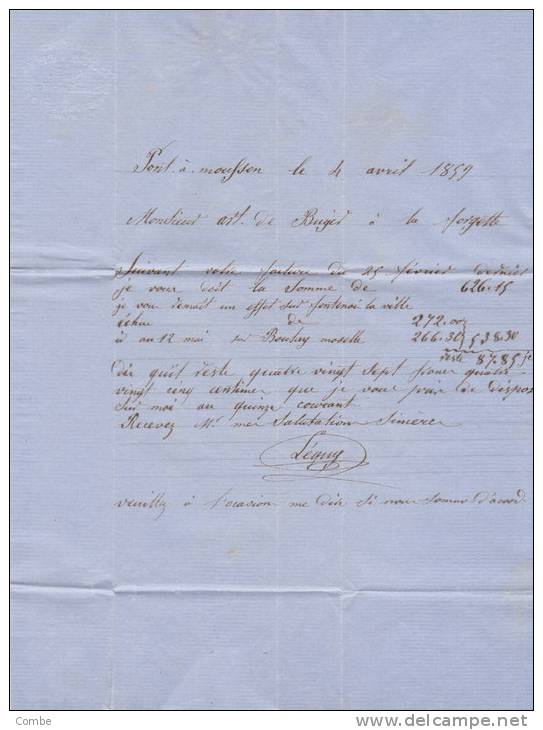 Pont-à-mousson le 4 avril 1859
Monsieur art. de Buyer à la forgette
Suivant votre facture du 25 février dernier
je vous doit la somme de 626.15
je vou remait un effet sur fontenoi la ville
échue de 272.00
id au 12 mai sur Boulay moselle 266.30 538.30
reste 87.85 fc
Dis quil réste quatre vingt sept franc quatre
vingt cinq centimes que je vous prie de dispos
sur moi au quinze courant
Recevez Mr mes Salutation Sincère
Léguy
veuillez à l'ocasion me dire si nous somes d'acord
Combe
www.delcampe.net